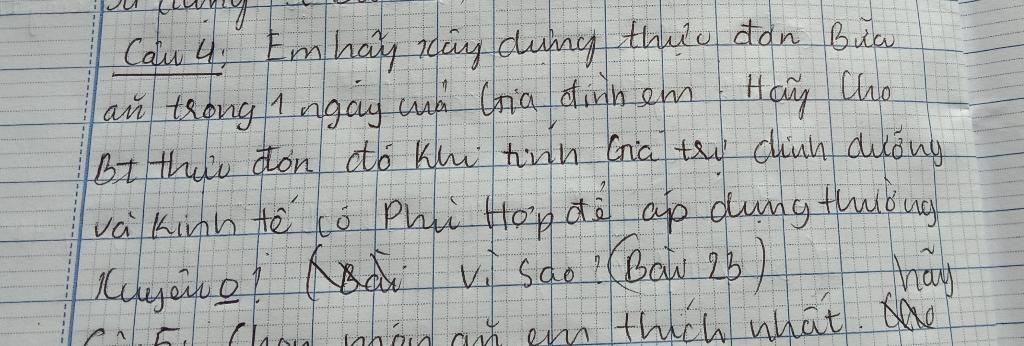 Câu 4: Em hãy xây dựng thực đơn Bữa
ăn trong 1 ngày của Gia đình em. Hãy Cho
BT thực đơn đó Khi tính Gia trị dinh dưỡng
và Kinh tế có Phù Hợp để áp dụng thường
Xuyên o? Vì sao? (Bài 23)
hãy
5. Chọn món ăn em thích nhất.